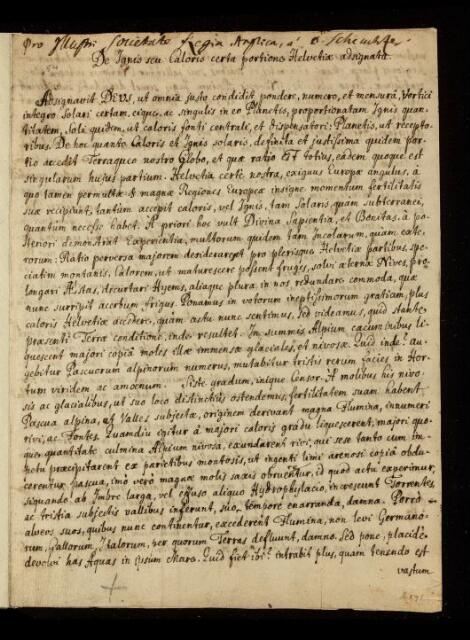 Pro Illustri Societate Regia Anglica, a Scheuchze
De Ignis seu Caloris certa portione Helvetiæ adsignata
Adsignavit DEUS, ut omnia justo condidit pondere, numero, et mensurâ, Vortici
integro Solari certam, eique, ac singulis in eo Planetis, proportionatam Ignis quan-
titatem, Soli quidem, ut caloris fonti centrali, et dispensatori: Planetis, ut recepto-
ribus. De hoc quanto Caloris et Ignis solaris, definita et justissima quidem por-
tio accedit Terraqueo nostro Globo, et quæ ratio est totius, eadem quoque est
singularum hujus partium. Helvetia certe nostra, exiguus Europæ angulus, à
quo tamen permultæ & magnæ Regiones Europeæ insigne momentum fertilitatis
suæ recipiunt, tantum accepit caloris, vel Ignis, tam Solaris quam subterranei,
quantum necesse habet. A priori hoc vult Divina Sapientia, et Bonitas, à po-
steriori demonstrat Experientia, multorum quidem tam Incolarum, quam exte-
rorum: Ratio perversa majorem desideraret pro plerisque Helvetiæ partibus, spe-
ciatim montanis, Calorem, ut maturescere possent fruges, solvi æternæ Nives, pro-
longari Æstas, decurtari Hyems, aliaque plura in nos redundare commoda, quæ
nunc surripit acerbum frigus. Ponamus in votorum ineptissimorum gratiam, plus
caloris Helvetiæ accedere, quam actu nunc sentimus, sed videamus, quid stante
præsenti Terræ conditione, inde resultet. In summis Alpium cacuminibus li-
quescent majori copiâ moles illæ immensæ glaciales, et nivosæ. Quid inde? au-
gebitur Pascuorum alpinorum numerus, mutabitur tristis rerum facies in Hor-
tum viridem ac amoenum. Siste gradum, inique Censor. A molibus his nivo-
sis ac glacialibus, ut suo loco distinctius ostendemus, fertilitatem suam habent
Pascua alpina, ut Valles subjectæ, originem derivant magna Flumina, innumeri
rivi, ac Fontes. Quamdiu igitur à majori caloris gradu liquescerent, majori quo-
que quantitate culmina Alpium nivosa, exundarent rivi, qui sese tanto cum im-
petu præcipitarent ex parietibus montosis, ut ingenti limi arenosi copiâ obdu-
cerentur pascua, imo verò magnæ molis saxis obruentur, id quod actu experimur,
siquando ab Imbre largo, vel effuso aliquo Hydrophylacio, increscunt Torrentes,
ac tristia subjectis vallibus inferunt, suo tempore enarranda, damna. Porrò
alveos suos, quibus nunc continentur, excederent Flumina, non levi Germano-
rum, Gallorum, Italorum, per quorum Terras defluunt, damno. Sed pone, placidè
devolvi has Aquas in ipsum Mare. Quid fiet ibi? intrabit plus, quam tenendo est
vastum